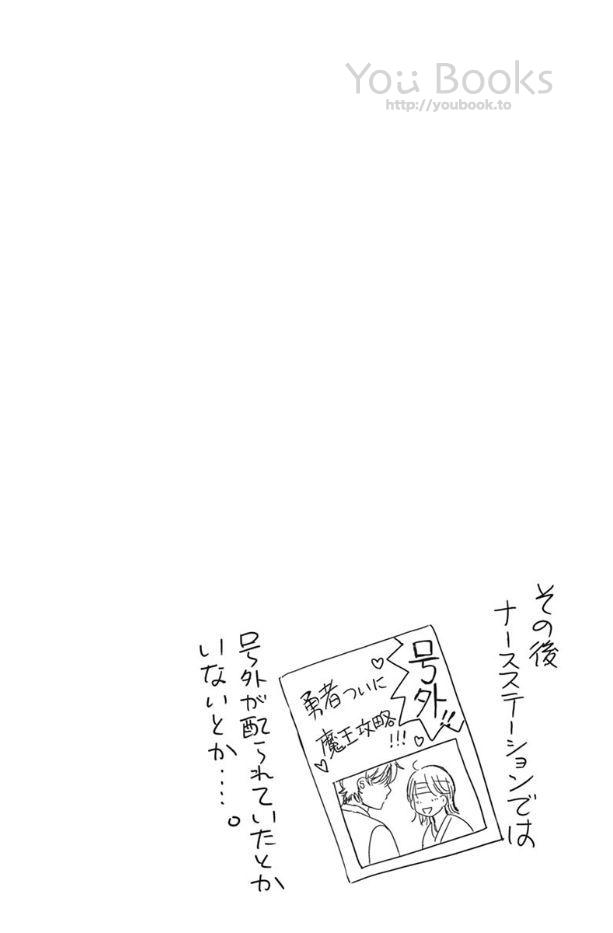 You Books
http://youbook.to
その後
ナースステーションでは
号外!!
勇者ついに
魔王攻略!!!
号外が配られていたとか
いないとか……。